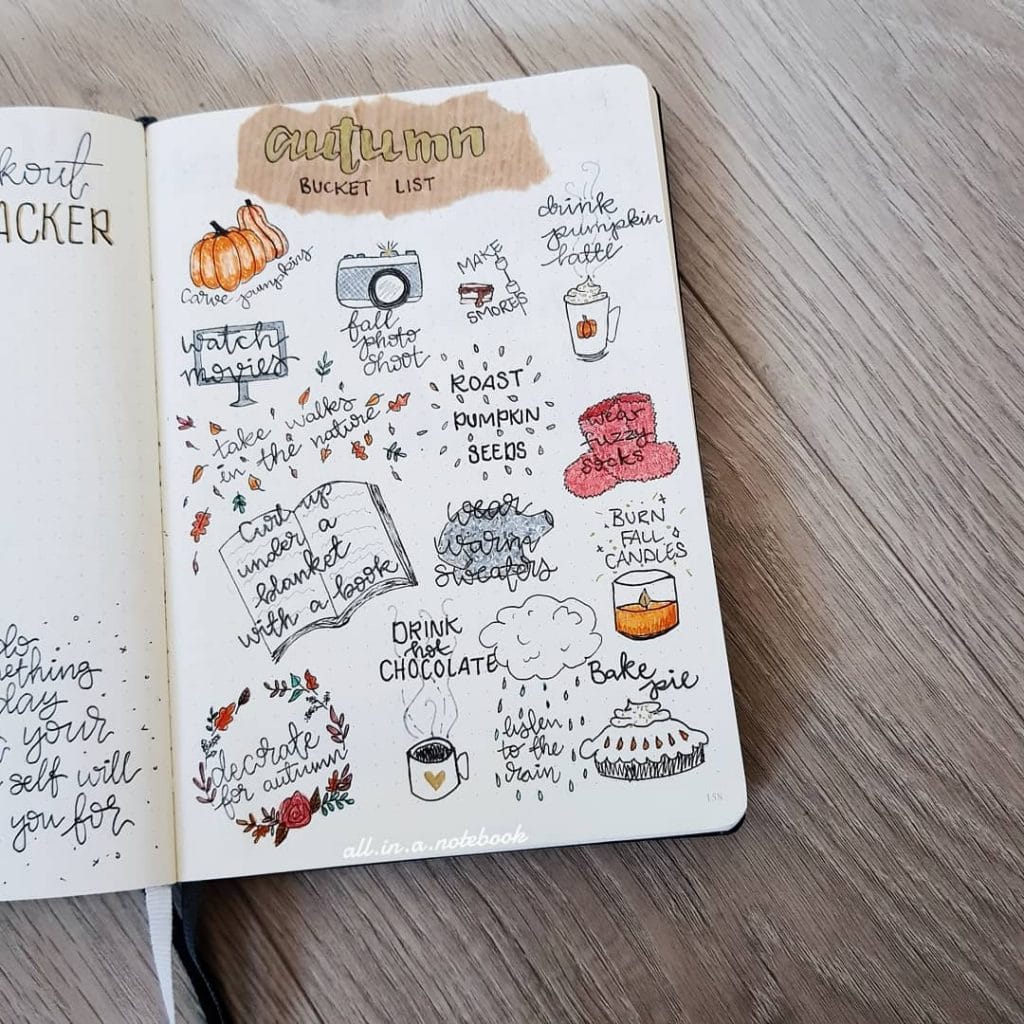 kout
ACKER
do
mething
day
your
self will
you for
autumn
BUCKET LIST
carve pumpkins
fall
photo
shoot
MAKE
SMORES
drink
pumpkin
latte
watch
movies
take walks
in the nature
ROAST
PUMPKIN
SEEDS
wear
fuzzy
socks
Curl up
under a
blanket
with a book
wear
warm
sweaters
BURN
FALL
CANDLES
DRINK
hot
CHOCOLATE
listen
to the
rain
Bake pie
decorate
for autumn
158
all.in.a.notebook